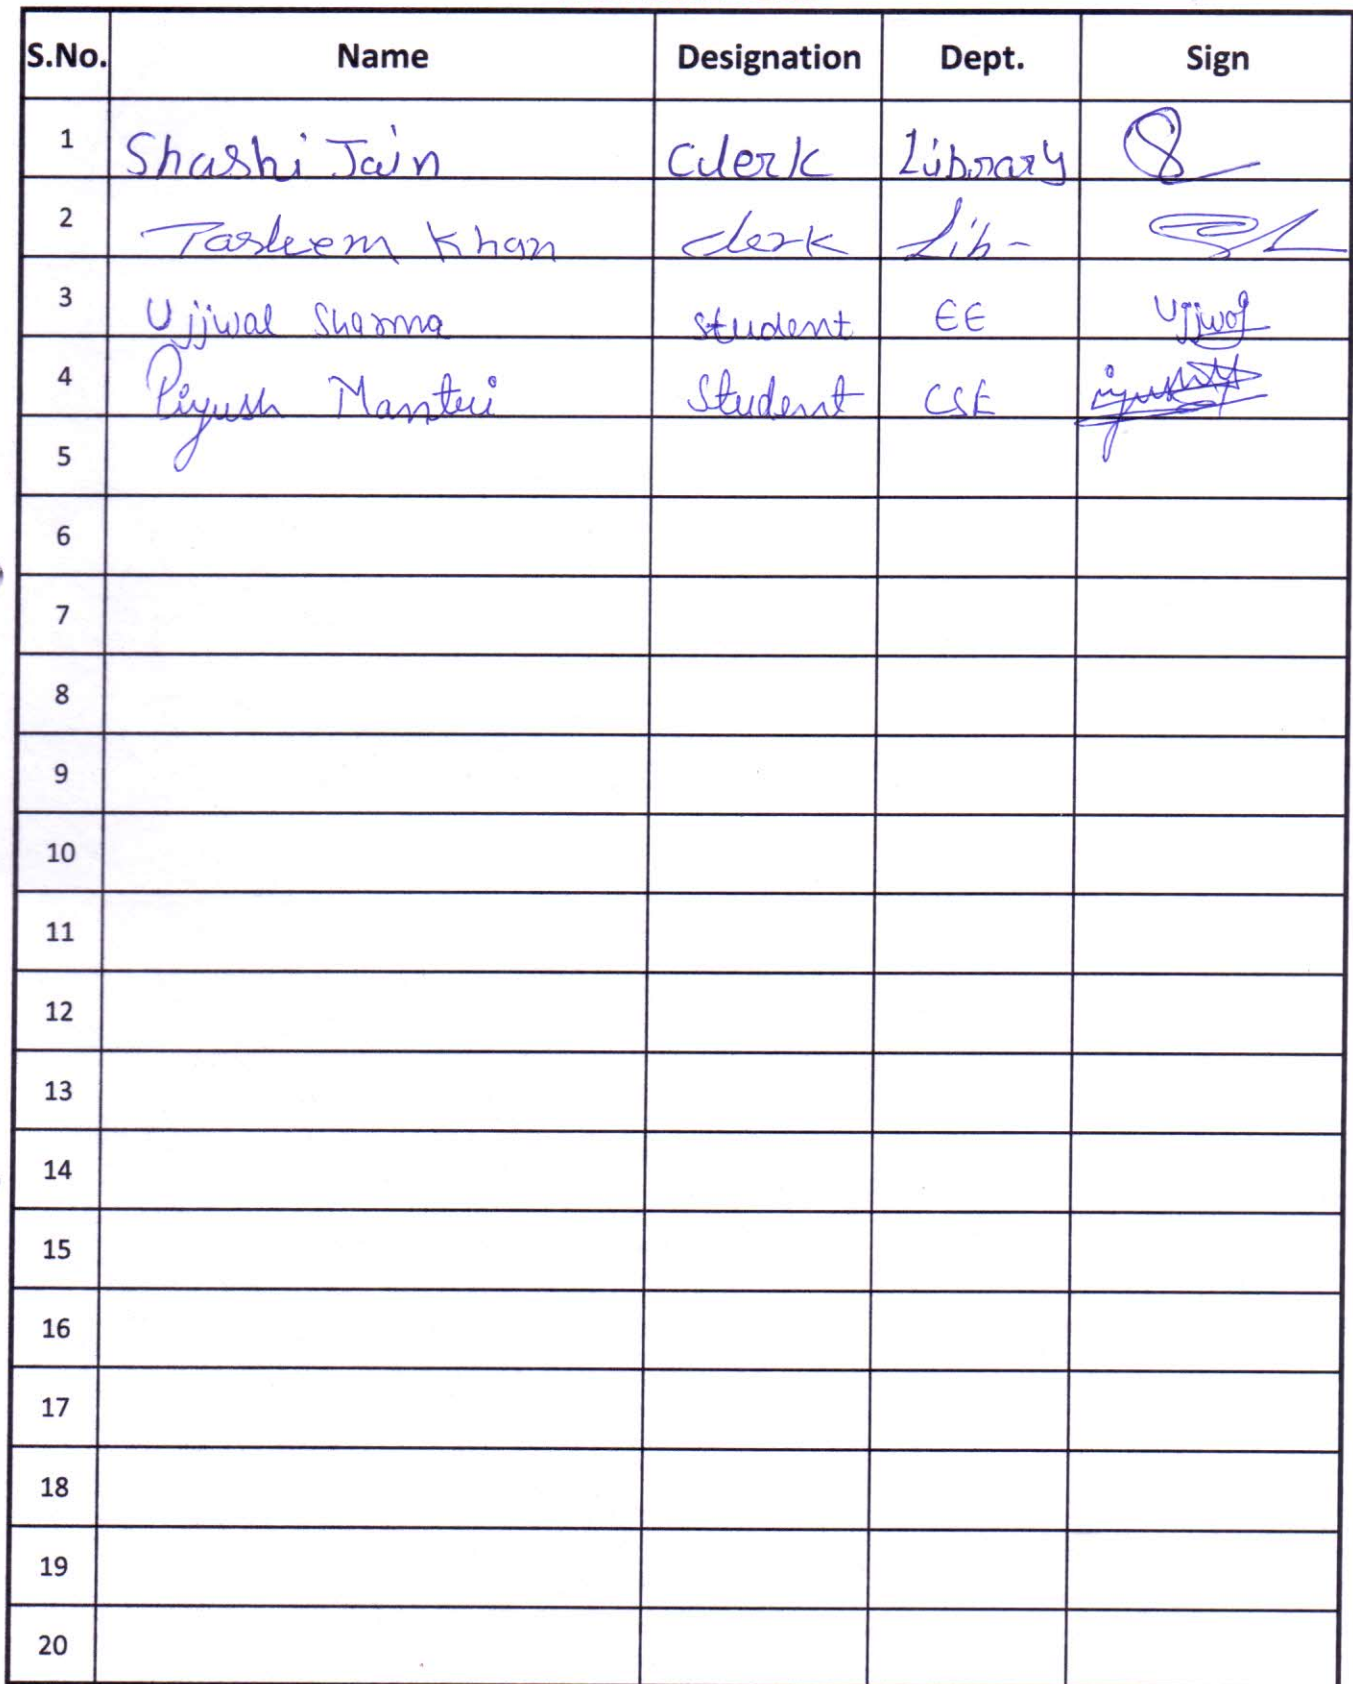 S.No. Name Designation Dept. Sign
1 Shashi Jain Clerk Library
2 Tasleem Khan Clerk Lib-
3 Ujjiwal Sharma Student EE Ujjwal
4 Piyush Mantri Student CSE
5
6
7
8
9
10
11
12
13
14
15
16
17
18
19
20